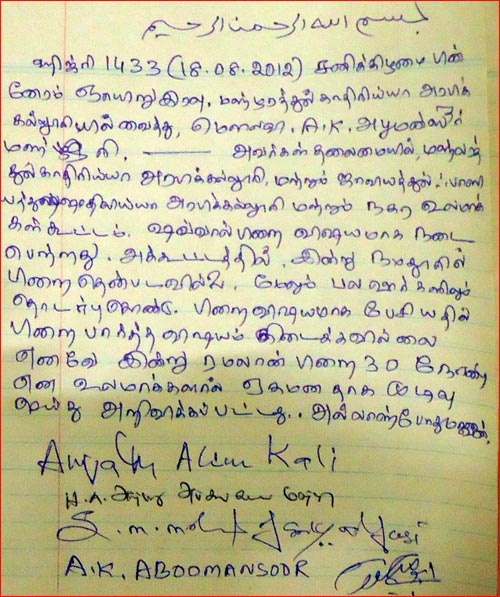 بسم الله الرحمن الرحيم
ஹிஜ்ரி 1433 (18.08.2012) சனிக்கிழமை பின்
னேரம் ஞாயிறு இரவு, மஹ்ழரத்துல் காதிரிய்யா அரபிக்
கல்லூரியில் வைத்து, மௌலவி. A.K. அபூமன்ஸூர்
அவர்கள் தலைமையில், மஹ்ழரத்
துல் காதிரிய்யா அரபிக்கல்லூரி, மற்றும்
அரபிக்கல்லூரி மற்றும் நகர உலமாக்
கள் கூட்டம். ஷவ்வால் பிறை விஷயமாக நடை
பெற்றது. அக்கூட்டத்தில், இன்று நமதூரில்
பிறை தென்படவில்லை, மேலும் பல ஊர்களிலும்
தொடர்பு கொண்டு. பிறை விஷயமாக பேசியதில்
பிறை பார்த்த விஷயம் கிடைக்கவில்லை
எனவே இன்று ரமலான் பிறை 30 நோன்பு
என உலமாக்களால் ஏகமனதாக முடிவு
செய்து அறிவிக்கப்பட்டது.. அல்லாஹ் போதுமானவன்.
Alim Kali
H.A.
A.K. ABOOMANSOOR